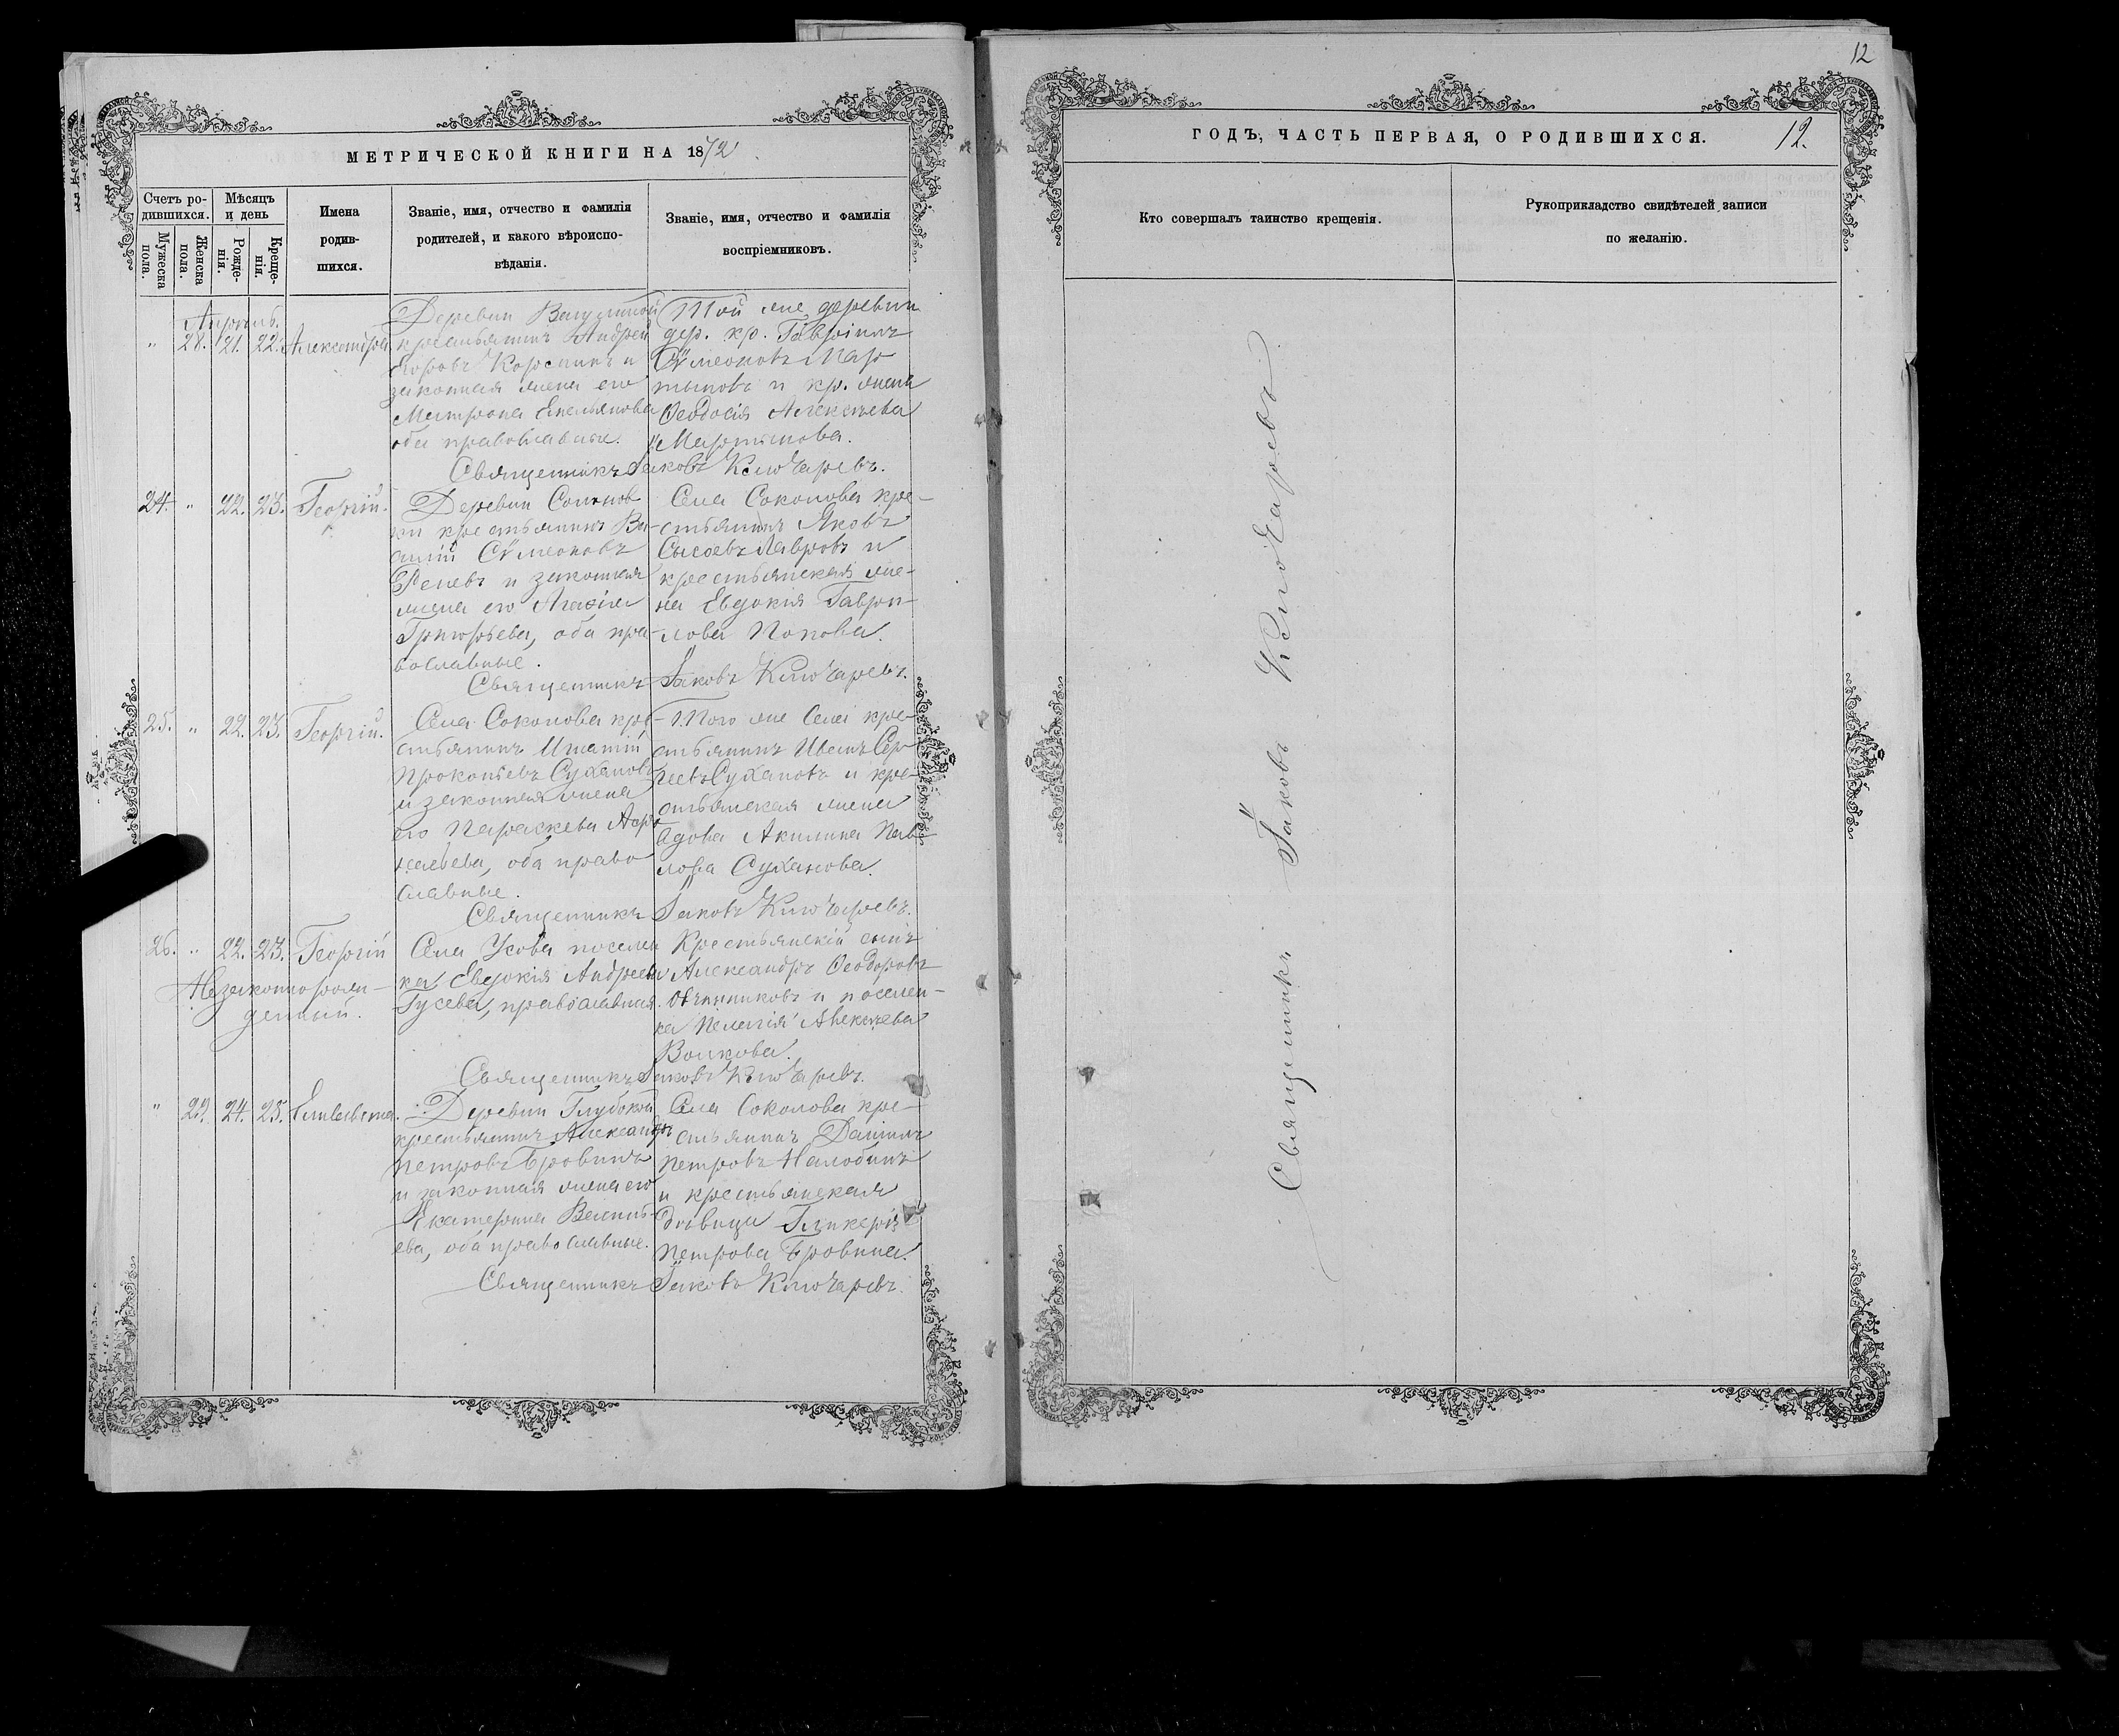 12
МЕТРИЧЕСКОЙ КНИГИ НА 1872
Счетъ ро-
дившихся.
Мужеска
пола.
Женска
пола.
Мѣсяцъ
и день
Рожде-
нія.
Креще-
нія.
Имена
родив-
шихся.
Званіе, имя, отчество и фамилія
родителей, и какого вѣроиспо-
вѣданія.
Званіе, имя, отчество и фамилія
воспріемниковъ.
Апрѣль.
" 28. 21. 22. Александра
Деревни
крестьянинъ Андрей
Егоровъ и
законная жена его
Матрона Емельянова
оба православные.
Той же деревни
дер. кр. Гавріилъ
Сѵмеоновъ Мар
тыновъ и кр. жена
Ѳеодосія Алексѣева
Мартынова.
Священникъ Іаковъ Ключаревъ.
24. " 22. 23. Георгій.
Деревни
ки крестьянинъ Ва-
силій Сѵмеоновъ
и законная
жена его Агафія
Григорьева, оба пра-
вославные.
Села Соколова кре-
стьянинъ Яковъ
Сысоевъ Лавровъ и
крестьянская же-
на Евдокія Гаврі-
лова Попова.
Священникъ Іаковъ Ключаревъ.
25. " 22. 23. Георгій.
Села Соколова кре-
стьянинъ Игнатій
Прокопьевъ Сухановъ
и законная жена
его Параскева
оба право
славные.
Того же села кре-
стьянинъ Иванъ Сер
гѣевъ Сухановъ и кре-
стьянская жена
вдова Акилина Пав-
лова Суханова.
Священникъ Іаковъ Ключаревъ.
26. " 22. 23. Георгій
Незаконнорож-
денный.
Села Усова поселен
ка Евдокія Андреева
Гусева, православная.
Крестьянскій сынъ
Александръ Ѳеодоровъ
Овчинниковъ и поселен-
ка Пелагія Алексѣева
Волкова.
Священникъ Іаковъ Ключаревъ.
" 29. 24. 25. Елисавета.
Деревни Глубокой
крестьянинъ Александръ
Петровъ Бровинъ
и законная жена его
Екатерина Василь-
ева, оба православные.
Села Соколова кре-
стьянинъ Даніилъ
Петровъ Налобинъ
и крестьянская
вдовица Гликерія
Петрова Бровина.
Священникъ Іаковъ Ключаревъ.
ГОДЪ, ЧАСТЬ ПЕРВАЯ, О РОДИВШИХСЯ.
12.
Кто совершалъ таинство крещенія.
Рукоприкладство свидѣтелей записи
по желанію.
Священникъ Іаковъ Ключаревъ